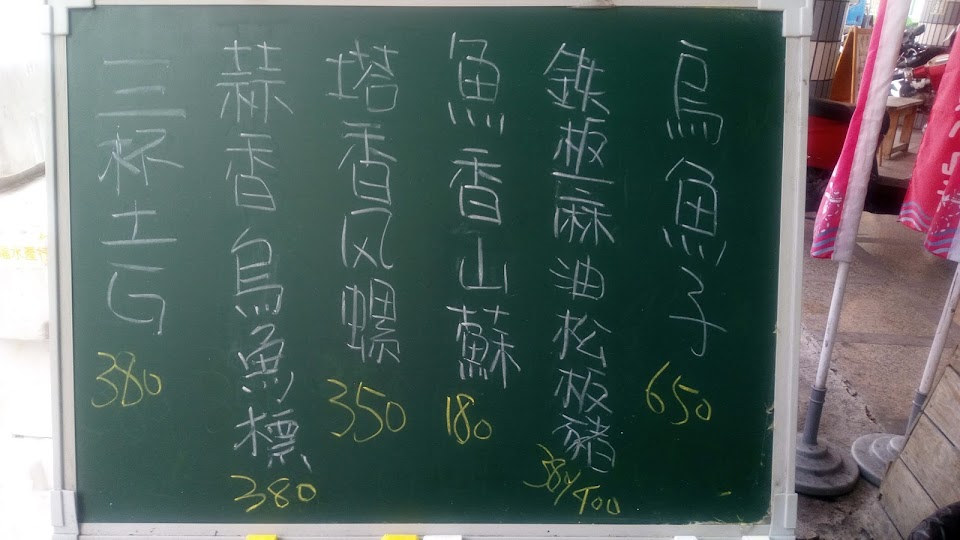 烏魚子 650
鉄板麻油松板豬 380/400
魚香山蘇 180
塔香风螺 350
蒜香烏魚標 380
三杯土G 380